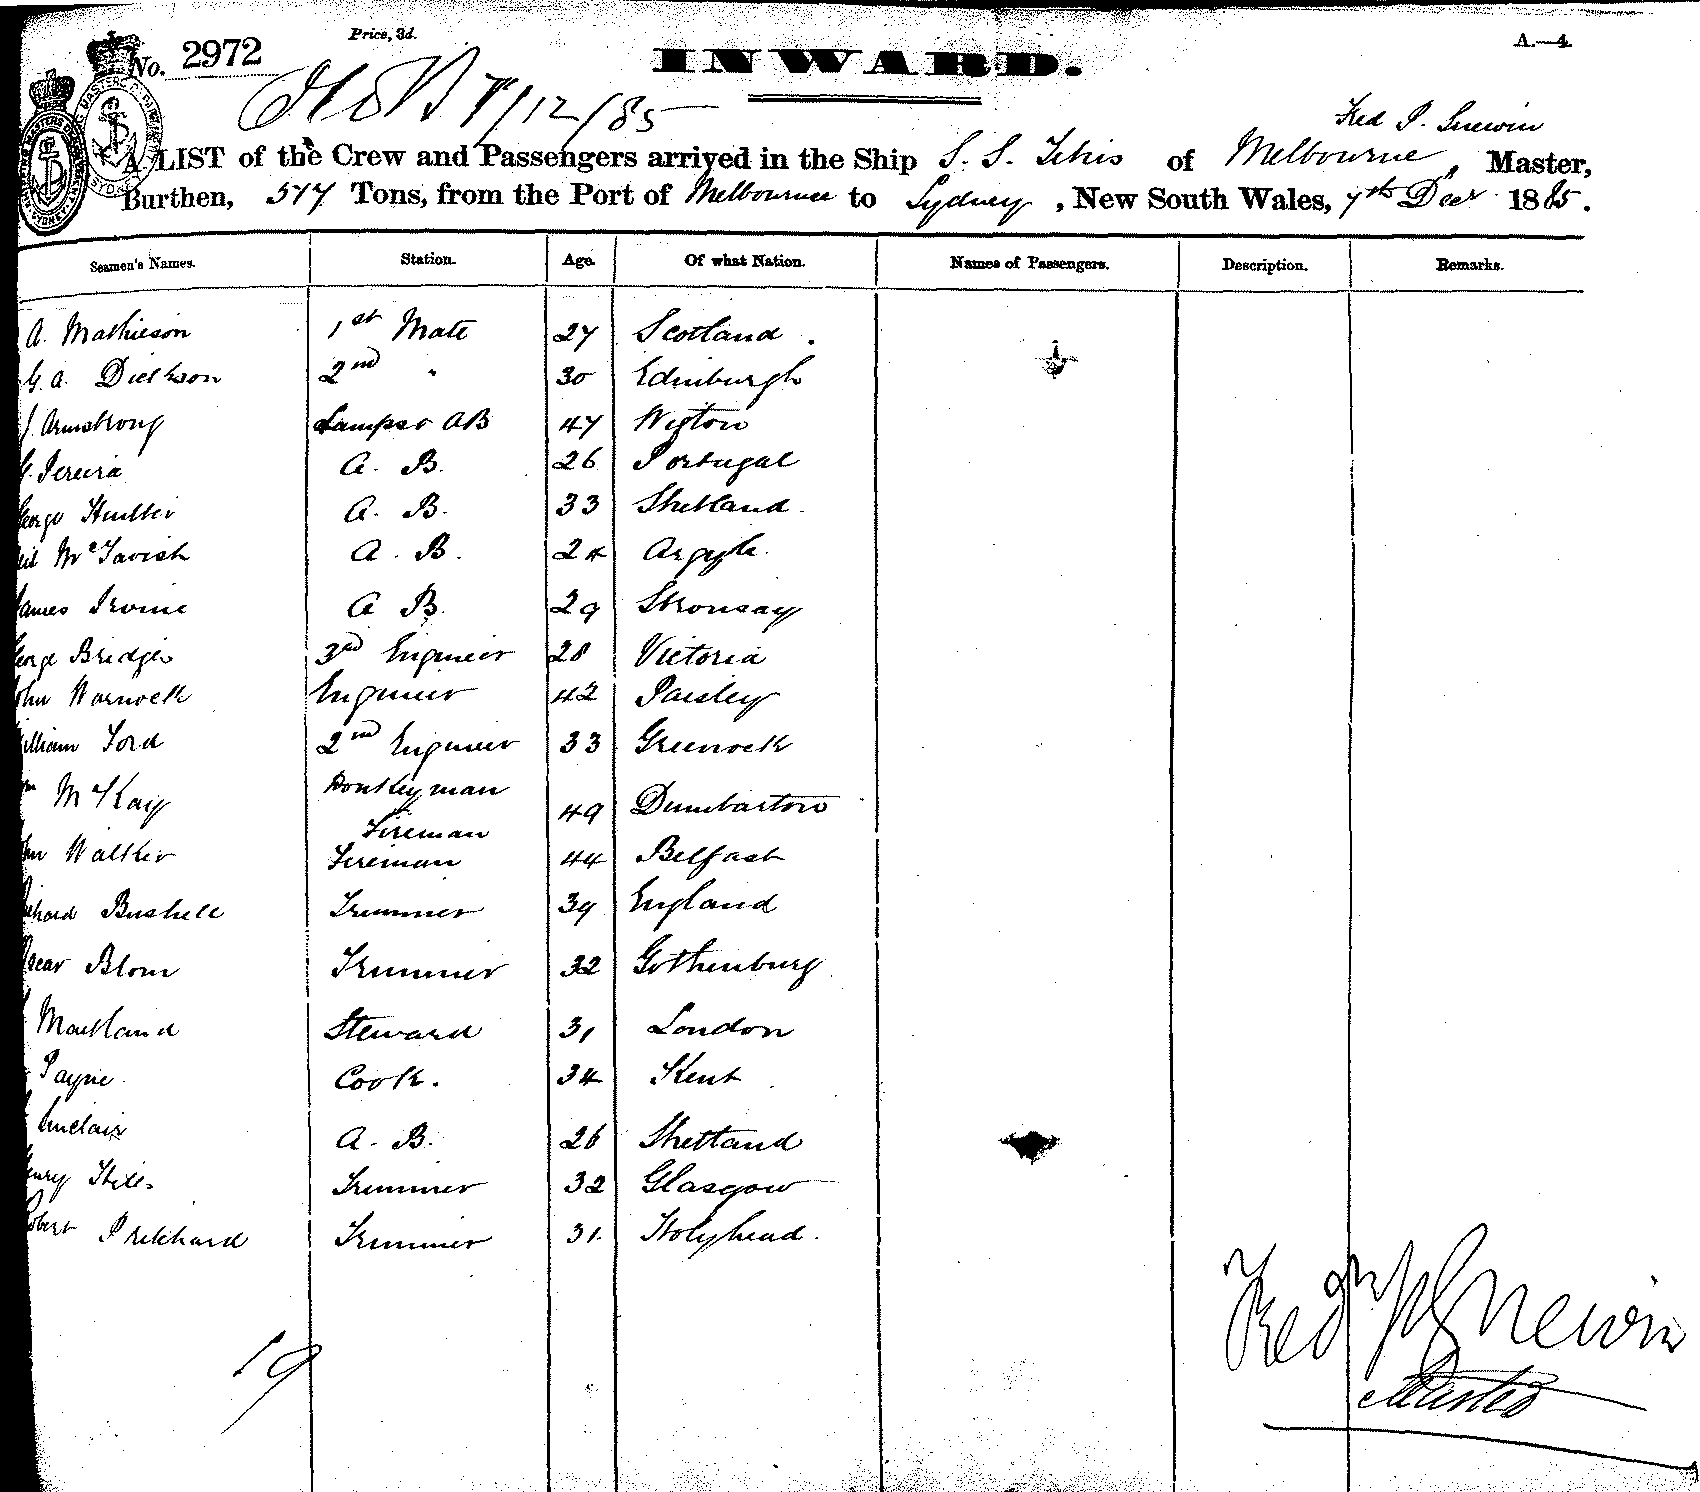 Price, 3d.
A.—4.
No. 2972
INWARD.
7/12/85
A LIST of the Crew and Passengers arrived in the Ship S. S. of Melbourne, Master,
Burthen, 577 Tons, from the Port of Melbourne to Sydney, New South Wales, 7th Decr 1885.
Seamen's Names. Station. Age. Of what Nation. Names of Passengers. Description. Remarks.
A. Mathieson 1st Mate 27 Scotland.
G. A. Dickson 2nd " 30 Edinburgh
J. Armstrong Lamps & AB 47 Wigton
G. Pereira A. B. 26 Portugal
George Hunter A. B. 33 Shetland.
McTavish A. B. 24 Argyle.
James Irvine A B. 29 Stronsay
George Bridges 3rd Engineer 28 Victoria
John Warnock Engineer 42 Paisley
William Ford 2nd Engineer 33 Greenock
McKay Donkeyman 49 Dumbarton
Fireman
Walker Fireman 44 Belfast
Richard Bushell Trimmer 39 England
Oscar Blom Trimmer 32 Gothenburg
Maitland Steward 31 London
Payne Cook. 34 Kent
Sinclair A. B. 26 Shetland
Henry Trimmer 32 Glasgow
Robert Pritchard Trimmer 31. Holyhead.
19
Master